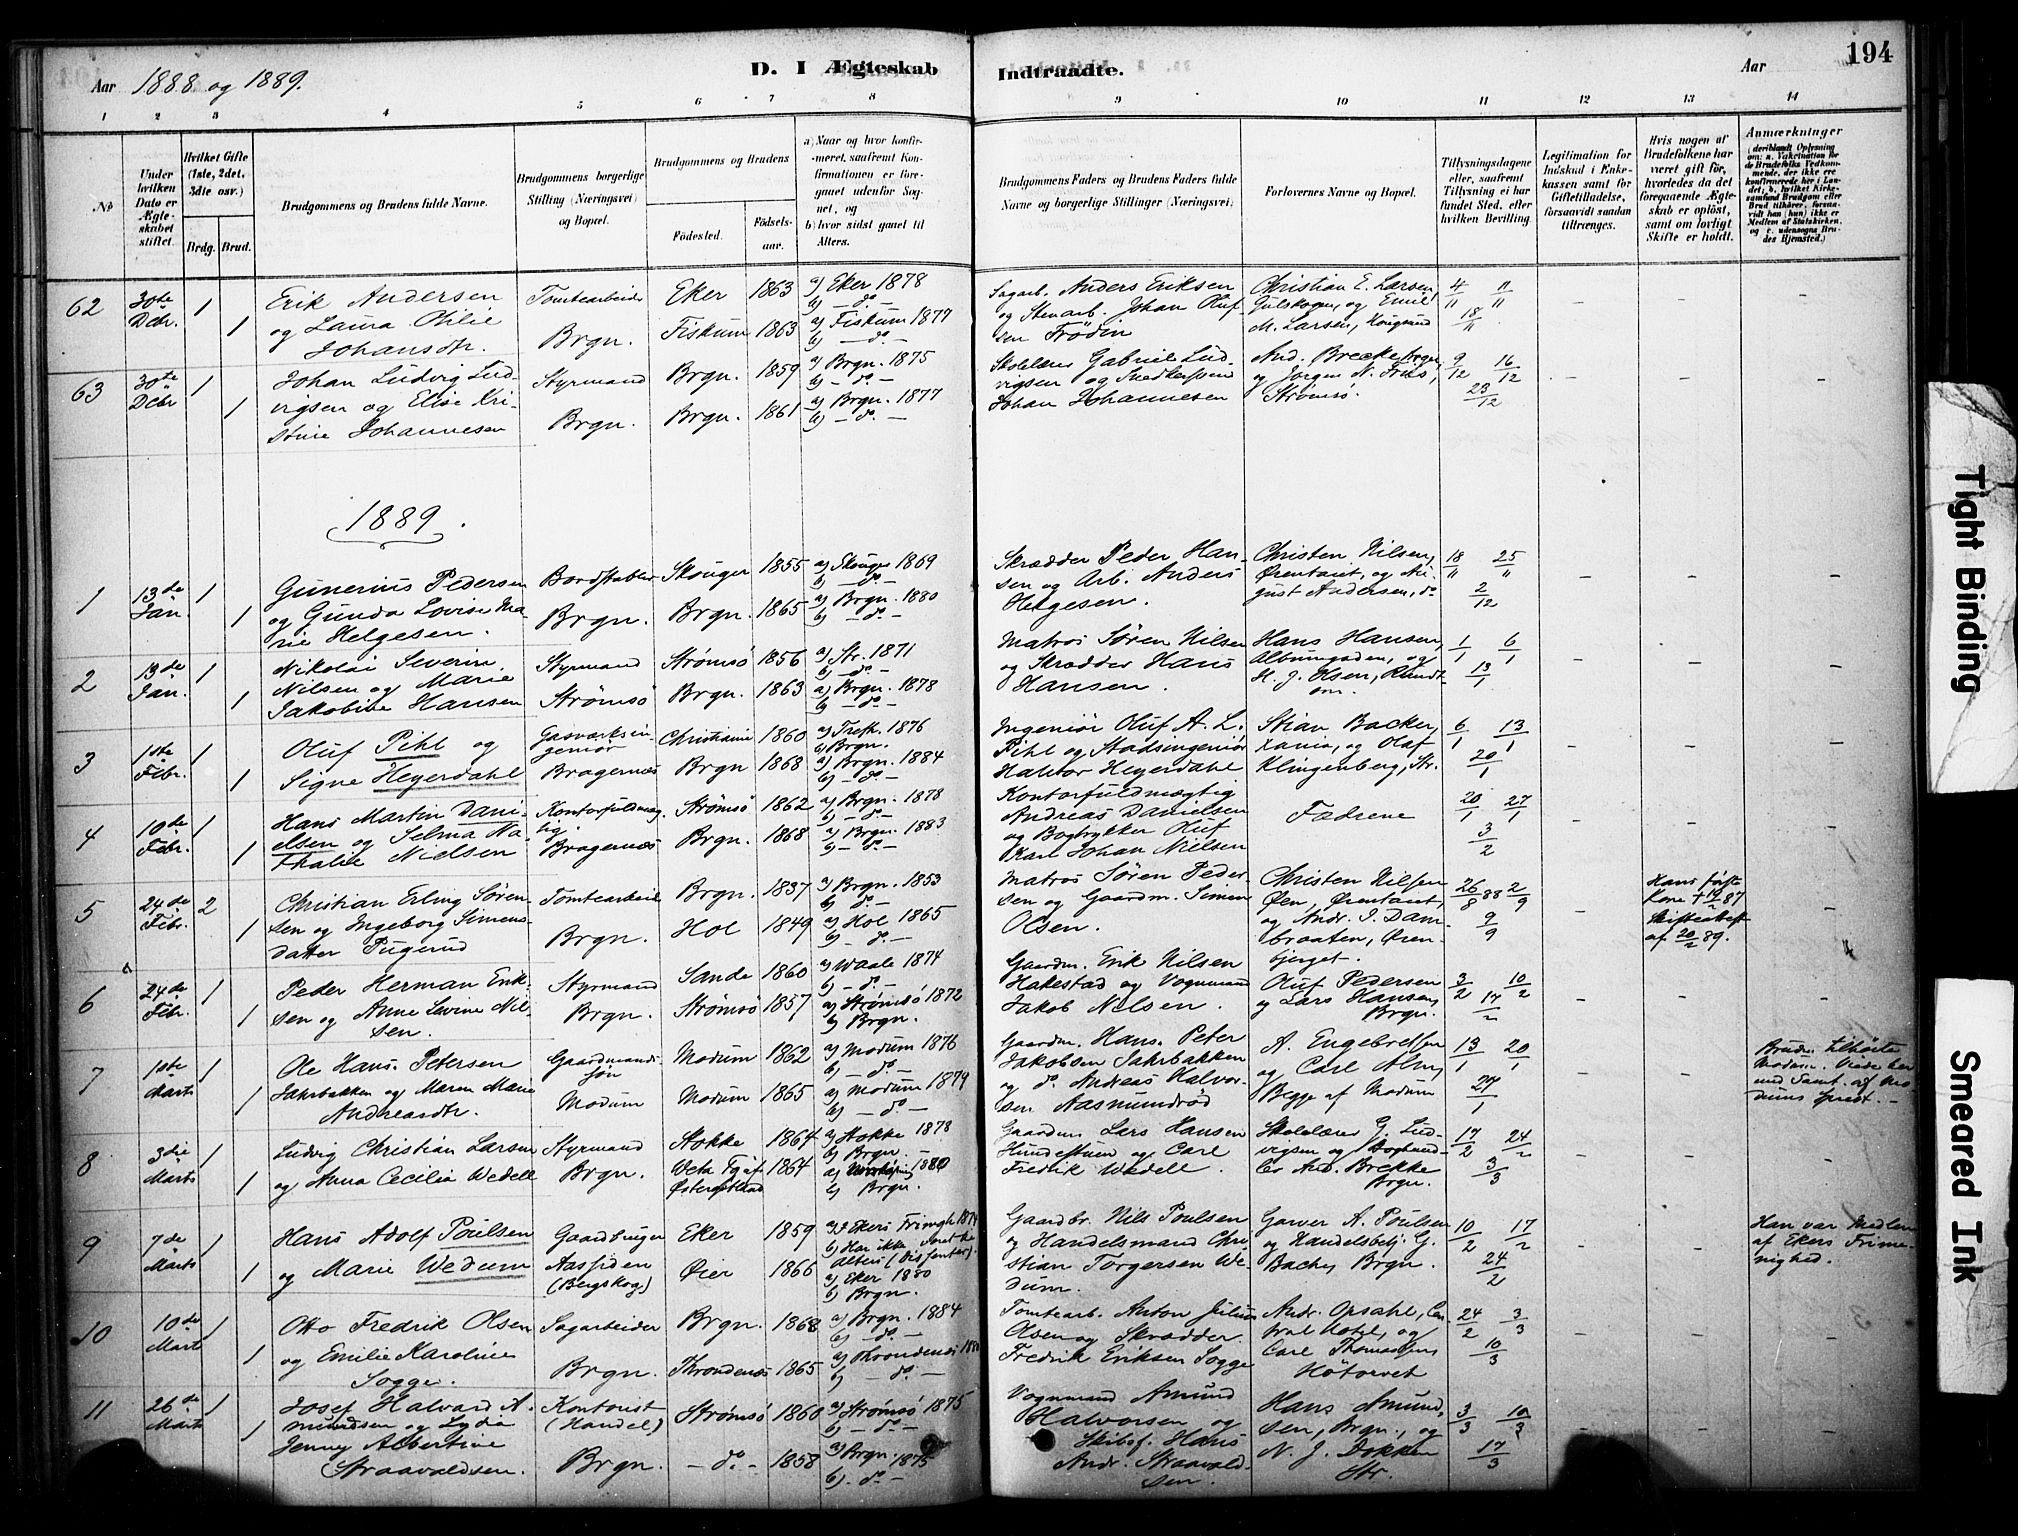 Aar 1888 og 1889.
D. I Ægteskab Indtraadte.
Aar 194
1 2 3 4 5 6 7 8 9 10 11 12 13 14
No
Under hvilken Dato er Ægteskabet stiftet.
Hvilket Gifte (1ste, 2det, 3die osv.)
Brdg. Brud.
Brudgommens og Brudens fulde Navne.
Brudgommens borgerlige Stilling (Næringsvei) og Bopæl.
Brudgommens og Brudens
Fødested. Fødselsaar.
a) Naar og hvor konfirmeret, saafremt Konfirmationen er foregaaet udenfor Sognet, og
b) hvor sidst gaaet til Alters.
Brudgommens Faders og Brudens Faders fulde Navne og borgerlige Stillinger (Næringsvei)
Forlovernes Navne og Bopæl.
Tillysningsdagene eller, saafremt Tillysning ei har fundet Sted, efter hvilken Bevilling.
Legitimation for Indskud i Enkekassen samt for Giftetilladelse, forsaavidt saadan tiltrænges.
Hvis nogen af Brudefolkene har været gift før, hvorledes da det foregaaende Ægteskab er opløst, samt om lovligt Skifte er holdt.
Anmærkninger
(deriblandt Oplysning om: a. Vakcination for de Brudefolks Vedkommende, der ikke ere konfirmerede her i Landet; b. hvilket Kirkesamfund Brudgom eller Brud tilhører, forsaavidt han (hun) ikke er Medlem af Statskirken, og c. udensogns Brudes Hjemsted.)
62 30te Dcbr. 1 1
Erik Andersen
og Laura Otilie
Johansdtr.
Tomtearbeider
Brgn.
Eker 1863 a) Eker 1878
b) — do.
Fiskum 1863 a) Fiskum 1877
b) — do.
Sagarb. Anders Eriksen
og Stenarb. Johan Oluf
sen Frödin
Christian E. Larsen
Gulskogen, og Emil
M. Larsen,
4/11 11/11
18/11
63 30te Dcbr 1 1
Johan Ludvig Lud-
vigsen og Elise Kri-
stine Johannesen
Styrmand
Brgn.
Brgn. 1859 a) Brgn. 1875
b) — do. —
Brgn. 1861 a) Brgn. 1877
b) — do. —
Skolelærer Gabriel Lud-
vigsen og Snedkersvend
Johan Johannesen
And. Brecke, Brgn.
og Jørgen N. Friis,
Strømsø.
9/12 16/12
23/12
1889.
1 13de Jan. 1 1
Gunerius Pedersen
og Gunda Lovise Ma-
rie Helgesen.
Bordstabler
Brgn.
Skouger 1855 a) Skouger 1869
b) — do.
Brgn. 1865 a) Brgn. 1880
b) — do. —
Skrædder Peder Han-
sen og Arb. Anders
Helgesen.
Christen Nilsen,
Ørentaret, og Au-
gust Andersen, do
18/11 25/11
2/12
2 13de Jan. 1 1
Nikolai Severin
Nilsen og Marie
Jakobine Hansen
Styrmand
Strømsø
Strømsø 1856 a) Str. 1871
b) — do. —
Brgn. 1863 a) Brgn. 1878
b) — do. —
Matros Søren Nilsen
og Skrædder Hans
Hansen.
Hans Hansen,
Albumgaden, og
H. J. Olsen, Rundt
om.
1/1 6/1
13/1
3 1ste Febr. 1 1
Oluf Pihl og
Signe Heyerdahl
Gasværksin-
geniør
Bragernæs
Christiania 1860 a) Trefk. 1876
b) Brgn.
Brgn 1868 a) Brgn. 1884
b) — do. —
Ingeniør Oluf A. L.
Pihl og Stadsingeniør
Halvor Heyerdahl
Stian Backer,
Xania, og Olaf
Klingenberg, Str.
6/1 13/1
20/1
4 10de Febr. 1 1
Hans Martin Dani-
elsen og Selma Na-
thalie Nielsen
Kontorfuldmæg-
tig.
Bragernæs
Strømsø 1862 a) Brgn. 1878
b) — do. —
Brgn. 1868 a) Brgn. 1883
b) — do. —
Kontorfuldmægtig
Andreas Danielsen
og Bogtrykker Oluf
Karl Johan Nielsen
Fædrene
20/1 27/1
3/2
5 24de Febr. 2 1
Christian Erling Søren-
sen og Ingeborg Simens-
datter Pugerud
Tomtearbeid.
Brgn.
Brgn. 1837 a) Brgn. 1853
b) — do. —
Hol 1849 a) Hol 1865
b) — do. —
Matros Søren Peder-
sen og Gaardm. Simen
Olsen.
Christen Nilsen
Øen, Ørentaret,
og Andr. I. Dam-
braaten, Øren-
bjerget.
26/8 88 2/9
9/9
Hans første
Kone + 87
Skifteattest
af 89.
6 24de Febr. 1 1
Peder Herman Erik-
sen og Anne Levine Nil-
sen.
Styrmand
Brgn.
Sande 1860 a) Waale 1874
b) — do. —
Strømsø 1857 a) Strømsø 1872
b) Brgn.
Gaardm. Erik Nilsen
Hakestad og Vognmand
Jakob Nilsen.
Oluf Pedersen
og Lars Hansen,
Brgn.
3/2 10/2
17/2
7 1ste Marts 1 1
Ole Hans. Petersen
Jahrbakken og Maren Marie
Andreasdtr.
Gaardmands-
søn
Modum
Modum 1862 a) Modum 1876
b) — do. —
Modum 1865 a) Modum 1879
b) — do. —
Gaardm. Hans. Peter
Jakobsen Jahrbakken
og do. Andreas Halvor-
sen Aasmundrød
A. Engebretsen
og Carl Alm,
Begge af Modum
13/1 20/1
27/1
Bruden tilhørte
Modum. Viede her
med Samt. af Mo-
dums Præst. —
8 3die Marts 1 1
Ludvig Christian Larsen
og Anna Cecilie Wedell
Styrmand
Brgn.
Stokke 1864 a) Stokke 1878
b) Brgn. —
Østergötland 1864 a) 1880
b) Brgn.
Gaardm. Lars Hansen
Hundestuen og Carl
Fredrik Wedell.
Skolelærer G. Lud-
vigsen og
And. Brekke
Brgn.
17/2 24/2
3/3
9 7de Marts 1 1
Hans Adolf Poulsen
og Marie Wedum
Gaardbruger
Aassiden
(Bergskog)
Eker 1859 a) Ekers Frimgh 1874
b) Har ikke været til
Alters (Dissenter).
Øier 1866 a) Eker 1880
b) Brgn.
Gaardbr. Nils Poulsen
og Handelsmand Chri-
stian Torgersen We-
dum.
Garver A. Poulsen
og Handelsbetj. G.
Bache, Brgn.
10/2 17/2
24/2
Han var Medlem
af Ekers Frime-
nighed.
10 10de Marts 1 1
Otto Fredrik Olsen
og Emilie Karoline
Sogge.
Sagarbeider
Brgn.
Brgn. 1868 a) Brgn. 1884
b) — do. —
Throndenæs 1865 a) Throndenæs 1880
b) — do. —
Tomtearb. Anton Julius
Olsen og Skrædder
Fredrik Eriksen Sogge
Andr. Opsahl, Cen-
tral Hotel, og
Carl Thomassen
Høtorvet
24/2 3/3
10/3
11 26de Marts 1 1
Josef Halvard A-
mundsen og Lydia
Jenny Albertine
Straavaldsen.
Kontorist
(Handel)
Brgn.
Strømsø 1860 a) Strømsø 1875
b) — do. —
— do. — 1858 a) Brgn. 1875
b) — do. —
Vognmand Amund
Halvorsen og
Skibsf. Hans
Andr. Straavald-
sen.
Hans Amund-
sen, Brgn., og
N. J. Dokken
Str.
3/3 10/3
17/3
Tight Binding
Smeared Ink